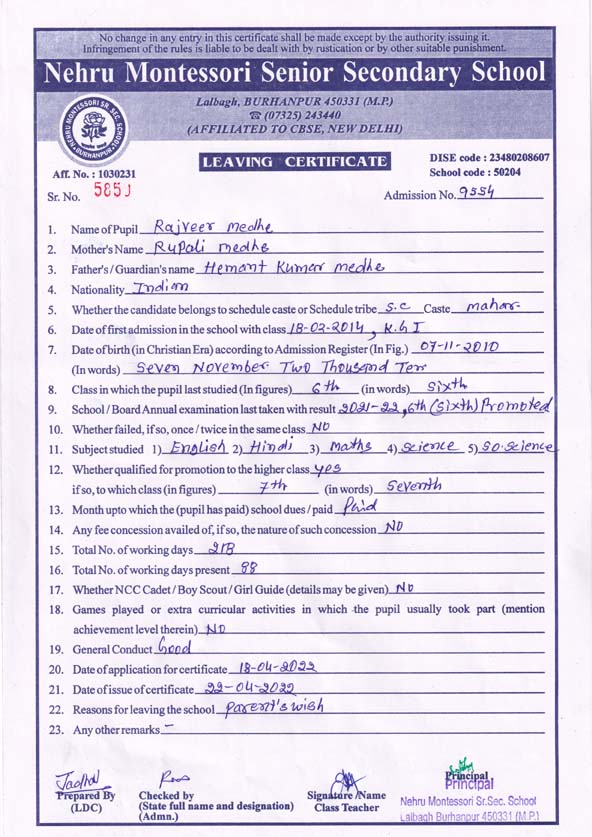 No change in any entry in this certificate shall be made except by the authority issuing it.
Infringement of the rules is liable to be dealt with by rustication or by other suitable punishment.
Nehru Montessori Senior Secondary School
Lalbagh, BURHANPUR 450331 (M.P.)
☎ (07325) 243440
(AFFILIATED TO CBSE, NEW DELHI)
NEHRU MONTESSORI SR. SEC. SCHOOL
BURHANPUR
LEAVING CERTIFICATE
DISE code : 23480208607
School code : 50204
Aff. No. : 1030231
Sr. No. 5851
Admission No. 9554
1. Name of Pupil Rajveer medhe
2. Mother's Name Rupali medhe
3. Father's / Guardian's name Hemant Kumar medhe
4. Nationality Indian
5. Whether the candidate belongs to schedule caste or Schedule tribe S.C Caste mahar
6. Date of first admission in the school with class 18-02-2014, K.G I
7. Date of birth (in Christian Era) according to Admission Register (In Fig.) 07-11-2010
(In words) Seven November Two Thousand Ten
8. Class in which the pupil last studied (In figures) 6th (in words) Sixth
9. School / Board Annual examination last taken with result 2021-22, 6th (Sixth) Promoted
10. Whether failed, if so, once / twice in the same class No
11. Subject studied 1) English 2) Hindi 3) Maths 4) Science 5) So.Science
12. Whether qualified for promotion to the higher class yes
if so, to which class (in figures) 7th (in words) Seventh
13. Month upto which the (pupil has paid) school dues / paid Paid
14. Any fee concession availed of, if so, the nature of such concession No
15. Total No. of working days 218
16. Total No. of working days present 88
17. Whether NCC Cadet / Boy Scout / Girl Guide (details may be given) No
18. Games played or extra curricular activities in which the pupil usually took part (mention
achievement level therein) No
19. General Conduct Good
20. Date of application for certificate 18-04-2022
21. Date of issue of certificate 22-04-2022
22. Reasons for leaving the school Parent's wish
23. Any other remarks -
Prepared By
(LDC)
Checked by
(State full name and designation)
(Admn.)
Signature / Name
Class Teacher
Principal
Principal
Nehru Montessori Sr.Sec. School
Lalbagh Burhanpur 450331 (M.P.)